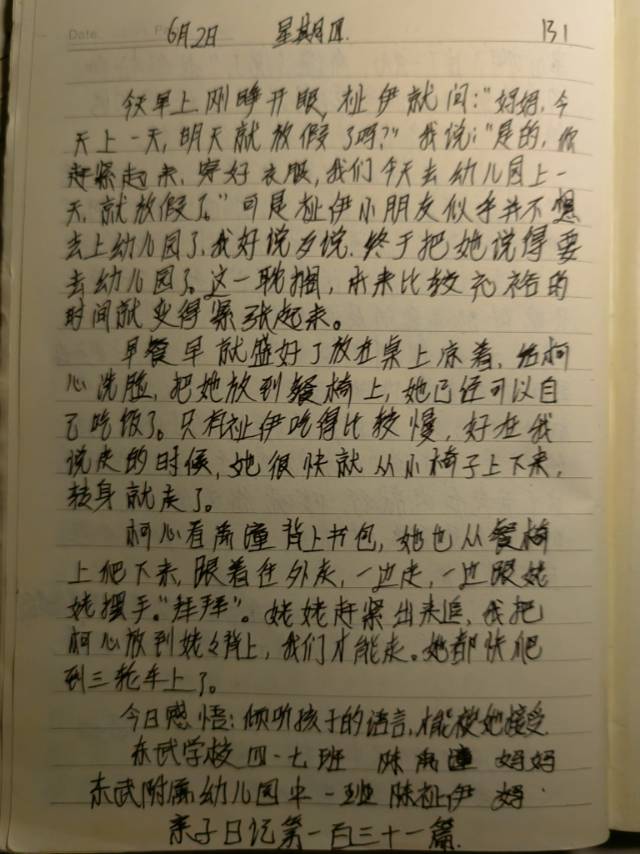 Date.
6月2日 星期四. 131
今早上刚睁开眼,祉伊就问:"妈妈,今
天上一天,明天就放假了吗?"我说:"是的,你
赶紧起来,穿好衣服,我们今天去幼儿园上一
天,就放假了。"可是祉伊小朋友似乎并不想
去上幼儿园了,我好说歹说,终于把她说得要
去幼儿园了。这一耽搁,本来比较充裕的
时间就变得紧张起来。
早餐早就盛好了放在桌上凉着,给柯
心洗脸,把她放到餐椅上,她已经可以自
己吃饭了。只有祉伊吃得比较慢,好在我
说走的时候,她很快就从小椅子上下来,
转身就走了。
柯心看禹潼背上书包,她也从餐椅
上爬下来,跟着往外走,一边走,一边跟姥
姥摆手。"拜拜"。姥姥赶紧出来追,我把
柯心放到姥姥背上,我们才能走。她都快爬
到三轮车上了。
今日感悟:倾听孩子的语言,才能被她接受
东武学校四·七班 陈禹潼 妈妈
东武附属幼儿园中一班陈祉伊 妈
亲子日记第一百三十一篇.